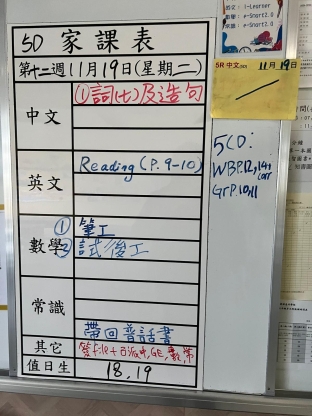 5D 家課表
第十二週 11月19日(星期二)
中文
①詞(七)及造句
英文
Reading (P.9-10)
數學
① 筆工
② 試後工
常識
帶回普話書
其它
值日生
18,19
i-Learner
e-Smart2.0
常識: e-Smart2.0
5R 中文(50) 11月19日
5CD:
WBP.12,14,
GrP.10,11